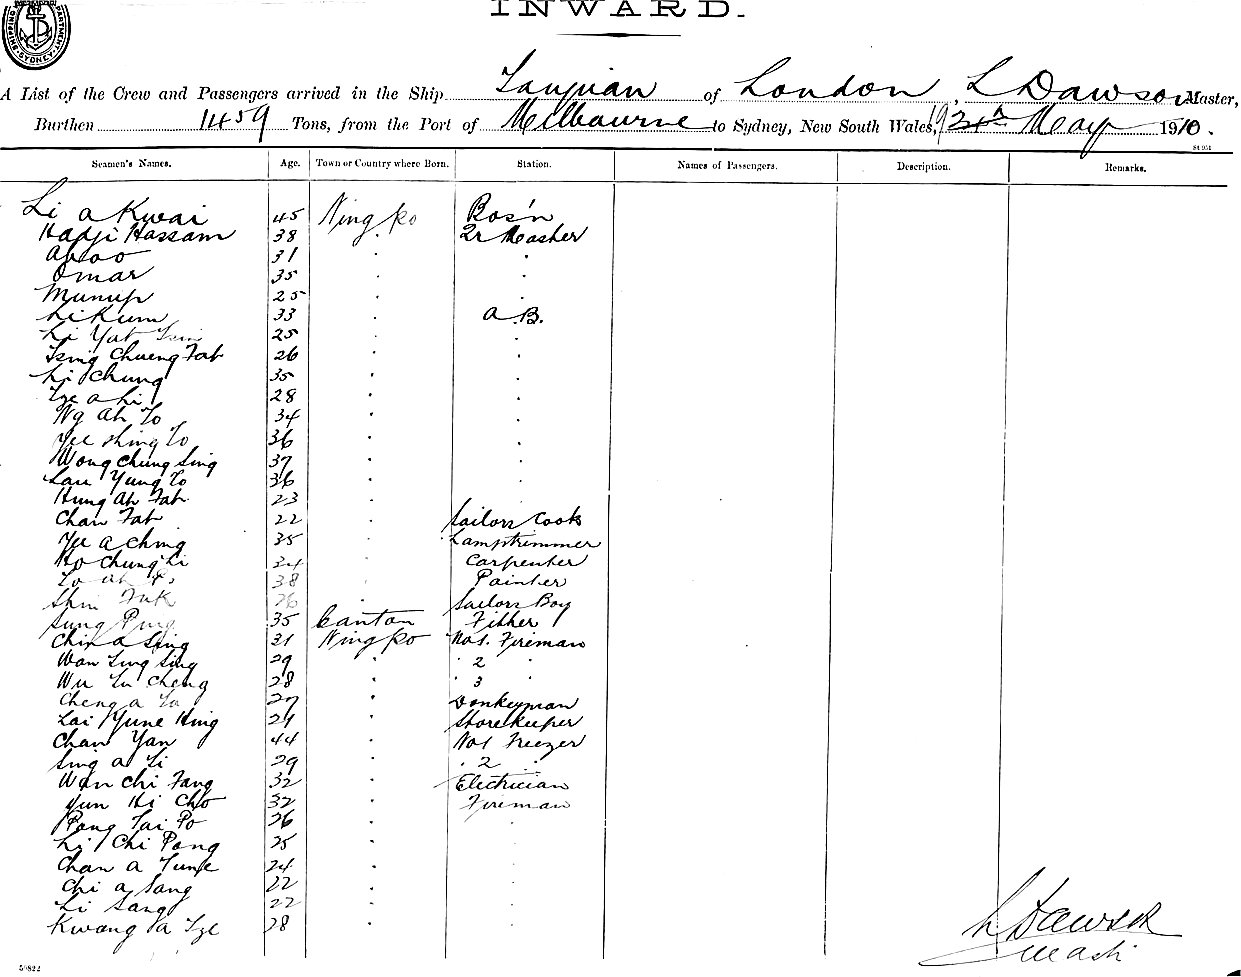 SHIPPING DEPARTMENT SYDNEY
INWARD.
A List of the Crew and Passengers arrived in the Ship Taiyuan of London, L Dawson Master,
Burthen 1459 Tons, from the Port of Melbourne to Sydney, New South Wales, 19 24th May 1910.
Seamen's Names. Age. Town or Country where Born. Station. Names of Passengers. Description. Remarks.
Li a Kwai 45 Ningpo Bos'n
Hadji Hassam 38 " "
Aboo 31 " "
Omar 35 " "
Munup 25 " "
Li Kum 33 " A.B.
Li Yat 25 " "
Tsing Chueng Fat 26 " "
Li Chung 35 " "
Tze a Li 28 " "
Ng Ah To 34 " "
Yee Shing To 36 " "
Wong Chung Sing 37 " "
Lau Yung To 36 " "
Hung Ah Fat 23 " "
Chan Fat 22 " Sailors Cook
Yee a Ching 35 " Lamptrimmer
Ho Chung Li 34 " Carpenter
38 " Painter
Shin Fuk 26 " Sailors Boy
Sung Ping 35 Canton Fitter
Chin a Sing 31 Ningpo No 1. Fireman
Wan Ling Sing 29 " " 2 "
Wu Tu Cheng 28 " " 3 "
Cheng a Ta 27 " Donkeyman
Lai Yune Hing 29 " Storekeeper
Chan Yan 44 " No 1 Freezer
Sing a Li 29 " " 2 "
Wan Chi Fang 32 " Electrician
Yun Hi Cho 32 " Fireman
Pang Tai Po 26 " "
Li Chi Pang 25 " "
Chan a Tunge 24 " "
Chi a Sang 22 " "
Li Sang 22 " "
Kwang a Tze 28 " "
L Dawson
Mast